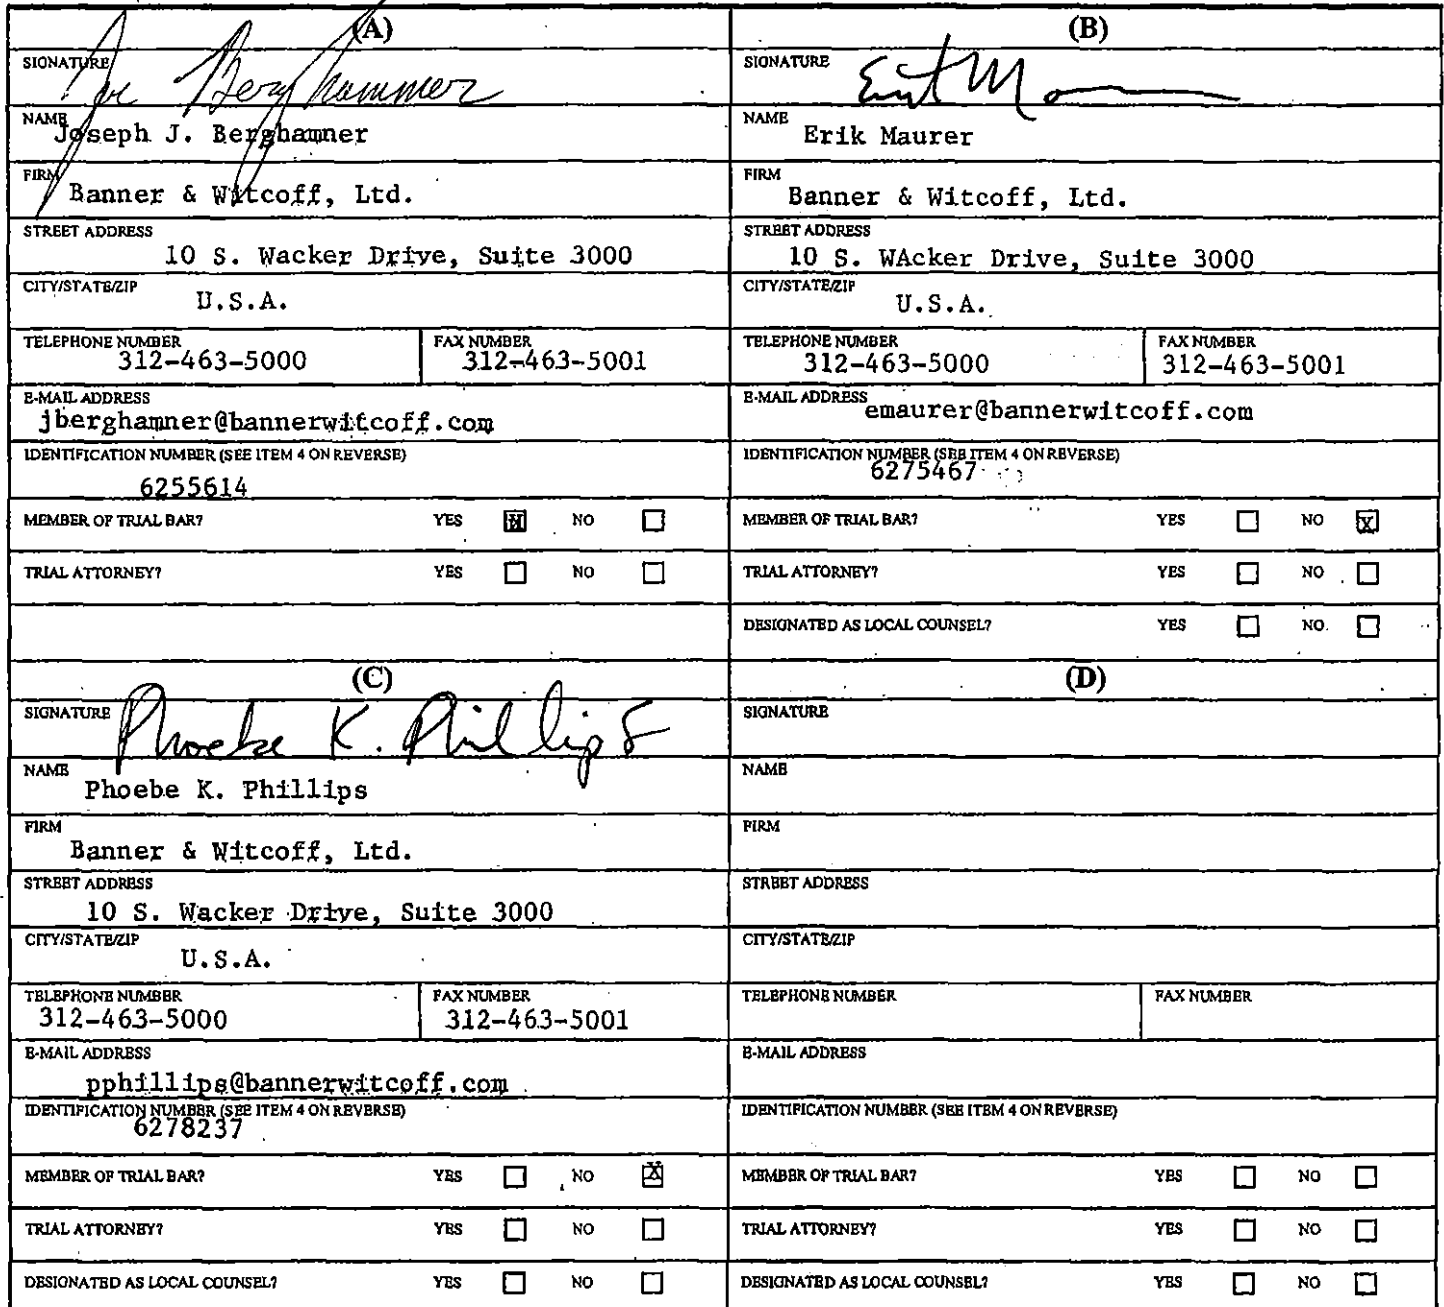 (A)
SIGNATURE Joe Berghammer
NAME Joseph J. Berghamner
FIRM Banner & Witcoff, Ltd.
STREET ADDRESS
10 S. Wacker Drive, Suite 3000
CITY/STATE/ZIP U.S.A.
TELEPHONE NUMBER FAX NUMBER
312-463-5000 312-463-5001
E-MAIL ADDRESS
jberghamner@bannerwitcoff.com
IDENTIFICATION NUMBER (SEE ITEM 4 ON REVERSE)
6255614
MEMBER OF TRIAL BAR? YES X NO
TRIAL ATTORNEY? YES NO
(B)
SIGNATURE
NAME Erik Maurer
FIRM
Banner & Witcoff, Ltd.
STREET ADDRESS
10 S. WAcker Drive, Suite 3000
CITY/STATE/ZIP U.S.A.
TELEPHONE NUMBER FAX NUMBER
312-463-5000 312-463-5001
E-MAIL ADDRESS emaurer@bannerwitcoff.com
IDENTIFICATION NUMBER (SEE ITEM 4 ON REVERSE)
6275467
MEMBER OF TRIAL BAR? YES NO X
TRIAL ATTORNEY? YES NO
DESIGNATED AS LOCAL COUNSEL? YES NO
(C)
SIGNATURE Phoebe K. Phillips
NAME
Phoebe K. Phillips
FIRM
Banner & Witcoff, Ltd.
STREET ADDRESS
10 S. Wacker Drive, Suite 3000
CITY/STATE/ZIP
U.S.A.
TELEPHONE NUMBER FAX NUMBER
312-463-5000 312-463-5001
E-MAIL ADDRESS
pphillips@bannerwitcoff.com
IDENTIFICATION NUMBER (SEE ITEM 4 ON REVERSE)
6278237
MEMBER OF TRIAL BAR? YES NO X
TRIAL ATTORNEY? YES NO
DESIGNATED AS LOCAL COUNSEL? YES NO
(D)
SIGNATURE
NAME
FIRM
STREET ADDRESS
CITY/STATE/ZIP
TELEPHONE NUMBER FAX NUMBER
E-MAIL ADDRESS
IDENTIFICATION NUMBER (SEE ITEM 4 ON REVERSE)
MEMBER OF TRIAL BAR? YES NO
TRIAL ATTORNEY? YES NO
DESIGNATED AS LOCAL COUNSEL? YES NO